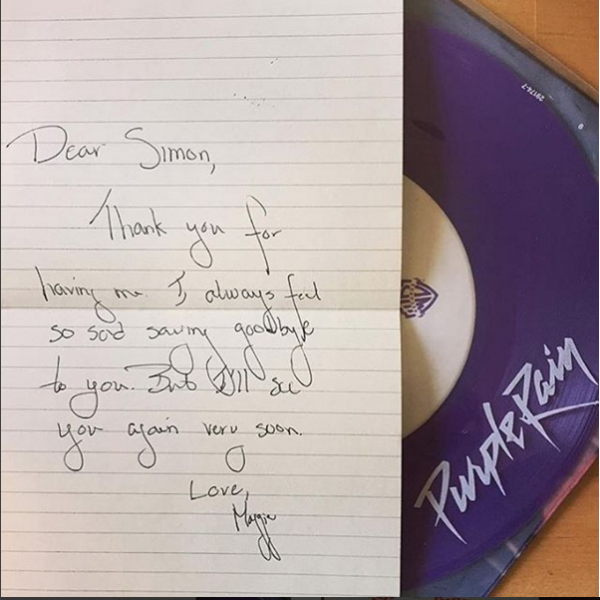 Dear Simon,
Thank you for
having me. I always feel
so sad saying goodbye
to you. But I'll see
you again very soon.
Love,
Maggie
Purple Rain